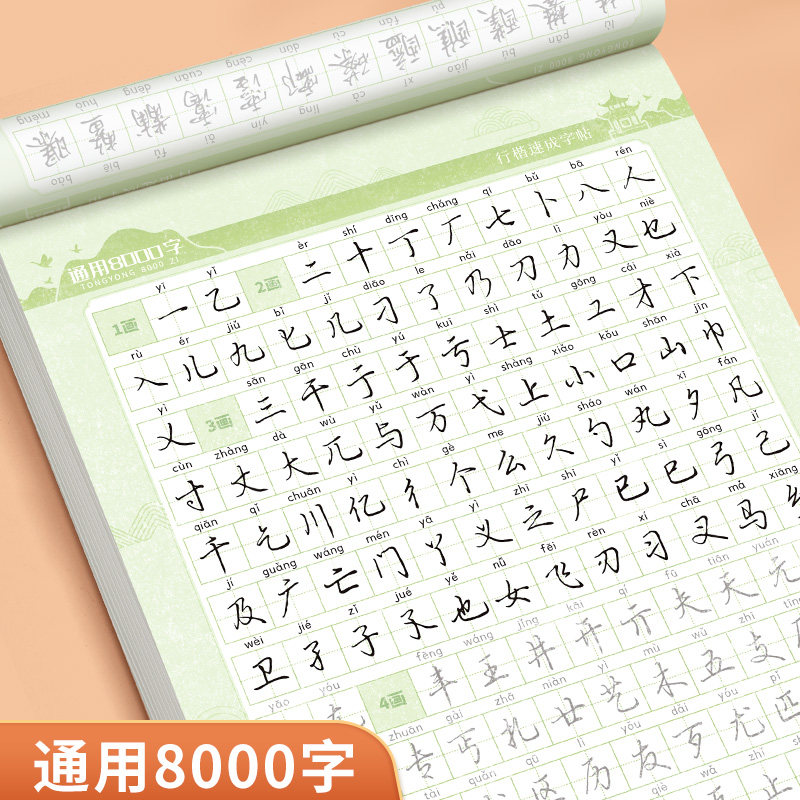 行楷速成字帖
通用8000字
TONGYONG 8000 ZI
yī yǐ èr shí dīng chǎng qī bǔ bā rén
1画 一 乙 2画 二 十 丁 厂 七 卜 八 人
rù ér jiǔ bǐ jǐ diāo le nǎi dāo lì yòu niè
入 儿 九 匕 几 刁 了 乃 刀 力 又 乜
yì sān gān chù yú kuī shì tǔ gōng cái xià
乂 3画 三 干 亍 于 亏 士 土 工 才 下
cùn zhàng dà wù yǔ wàn yì shàng xiǎo kǒu shān jīn
寸 丈 大 兀 与 万 弋 上 小 口 山 巾
qiān qǐ chuān yì chì gè me jiǔ sháo wán xī fán
千 乞 川 亿 彳 个 么 久 勺 丸 夕 凡
jí guǎng wáng mén yā yì zhī shī yǐ sì gōng jǐ
及 广 亡 门 丫 义 之 尸 已 巳 弓 己
wèi jié zǐ jué yě nǚ fēi rèn xí chā mǎ xiāng
卫 孑 子 孓 也 女 飞 刃 习 叉 马
yāo yóu fēng wáng jǐng kāi qí fū tiān yuán
4画 丰 王 井 开 亓 夫 天 元
zhuān gài zhā niàn yì mù wǔ zhī tīng
专 丐 扎 廿 艺 木 五 支
tài quǎn qū lì yǒu dǎi yóu pǐ
区 历 友 歹 尤 匹
通用8000字